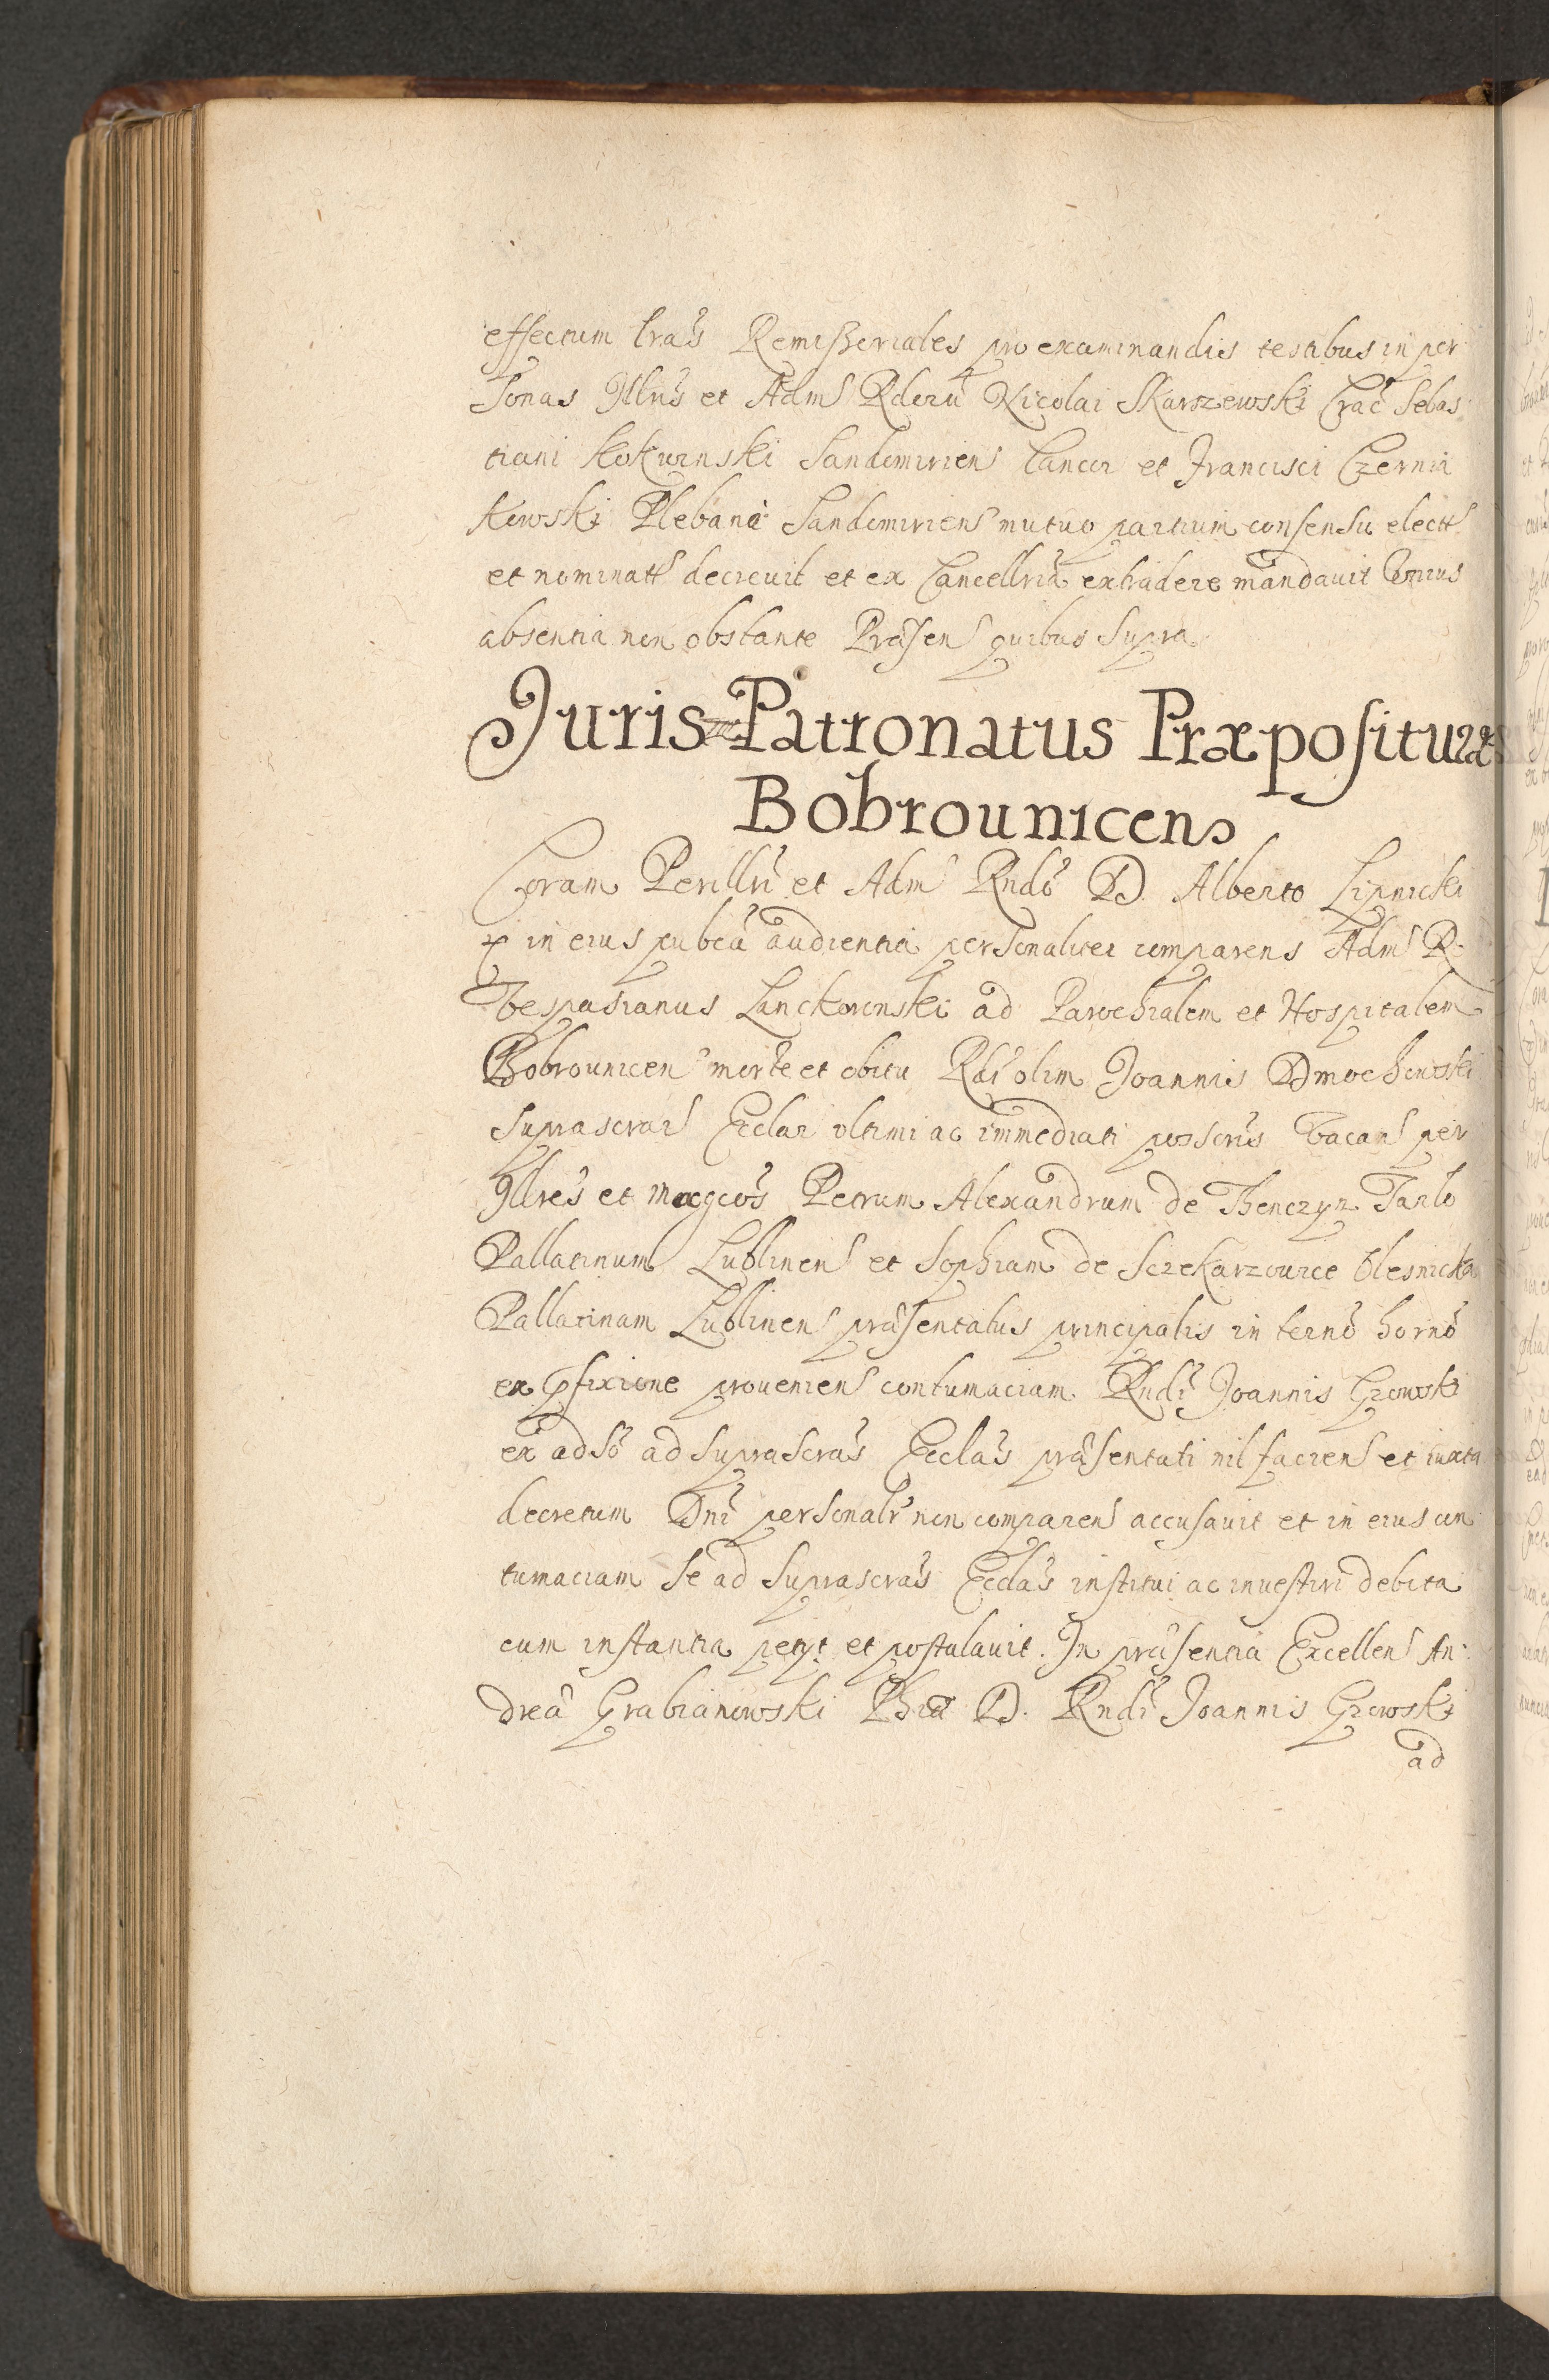 effectum lras Remisseriales pro examinandis testibus in per
sonas Illris et Adm Rdoru Nicolai Skarszewski Crac Sebas
tiani Kokwinski Sandomirien Cancor et Francisci Czernia
kowski Plebani Sandomirien mutuo partium consensu elect
et nominat decrevit et ex Cancellria extradere mandavit
absentia non obstante Præsen quibus supra
Juris Patronatus Præpositura
Bobrounicens
Coram Perillri et Adm Rndo D. Alberto Lipnicki
in eius publca audientia personaliter comparens Adm R.
Vespasianus Lanckoronski ad Parochialem et Hospitalem
Bobrounicen morte et obitu Rdi olim Joannis Dmochowski
suprascrar Ecclar ultimi ac immediati possoris vacan per
Illres et Magcos Petrum Alexandrum de Thenczyn Tarlo
Pallatinum Lublinen et Sophiam de Sczekarzouice Olesnicka
Pallatinam Lublinen præsentatus principalis in terno horno
ex pfixione prouenien contumaciam Rndi Joannis Growski
ex adso ad suprascras Ecclas præsentati nil facien et iuxta
decretum Dni personalr non comparen accusavit et in eius con
tumaciam se ad suprascras Ecclas institui ac inuestiri debita
cum instantia petyt et postulavit. In præsentia Excellen An
dreæ Grabianowski Phiæ D. Rndi Joannis Growski
ad